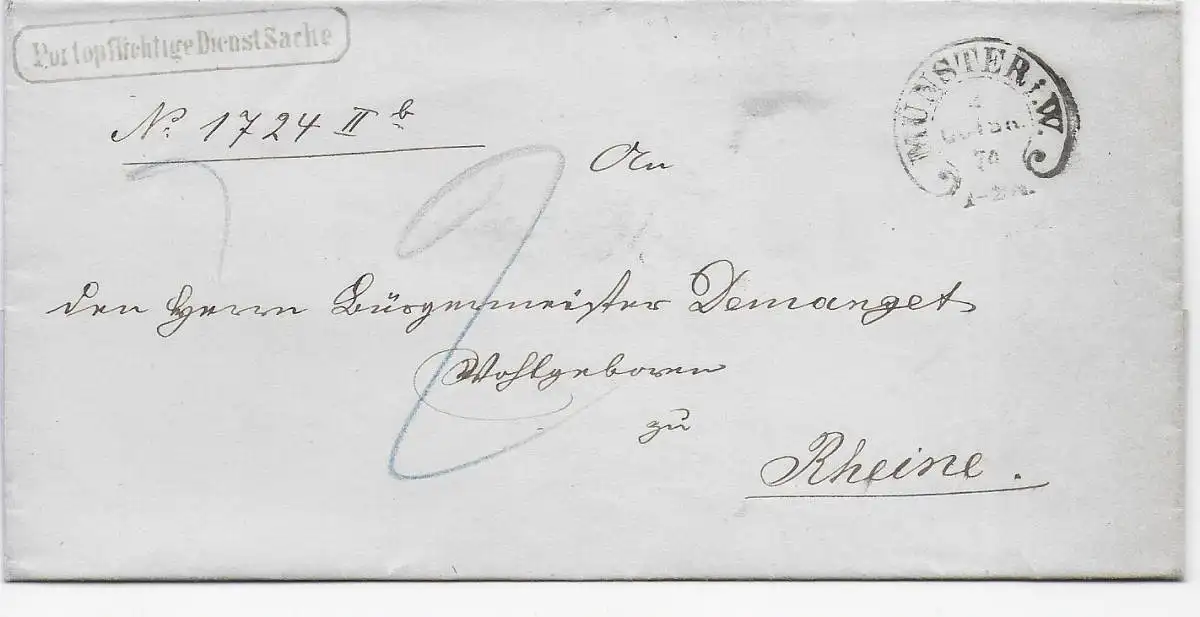 Portopflichtige DienstSache
MÜNSTER i. W.
4
74
No 1724 II b
An
2
den Herrn Bürgermeister Demanget
Wohlgeboren
zu
Rheine.